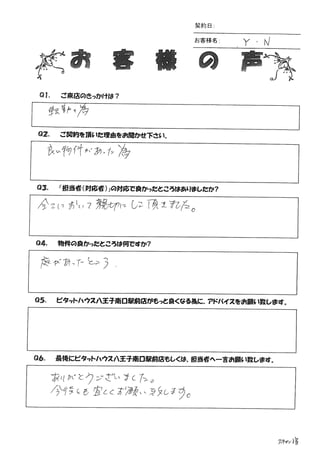 契約日:
お客様名: Y・N
お客様の声
Q1. ご来店のきっかけは?
転勤の為
Q2. ご契約を頂いた理由をお聞かせ下さい。
良い物件があった為
Q3. 「担当者(対応者)」の対応で良かったところはありましたか?
全てにおいて親切にして頂きました。
Q4. 物件の良かったところは何ですか?
庭があったところ.
Q5. ピタットハウス八王子南口駅前店がもっと良くなる為に、アドバイスをお願い致します。
Q6. 最後にピタットハウス八王子南口駅前店もしくは、担当者へ一言お願い致します。
ありがとうございました。
今後とも宜しくお願い致します。